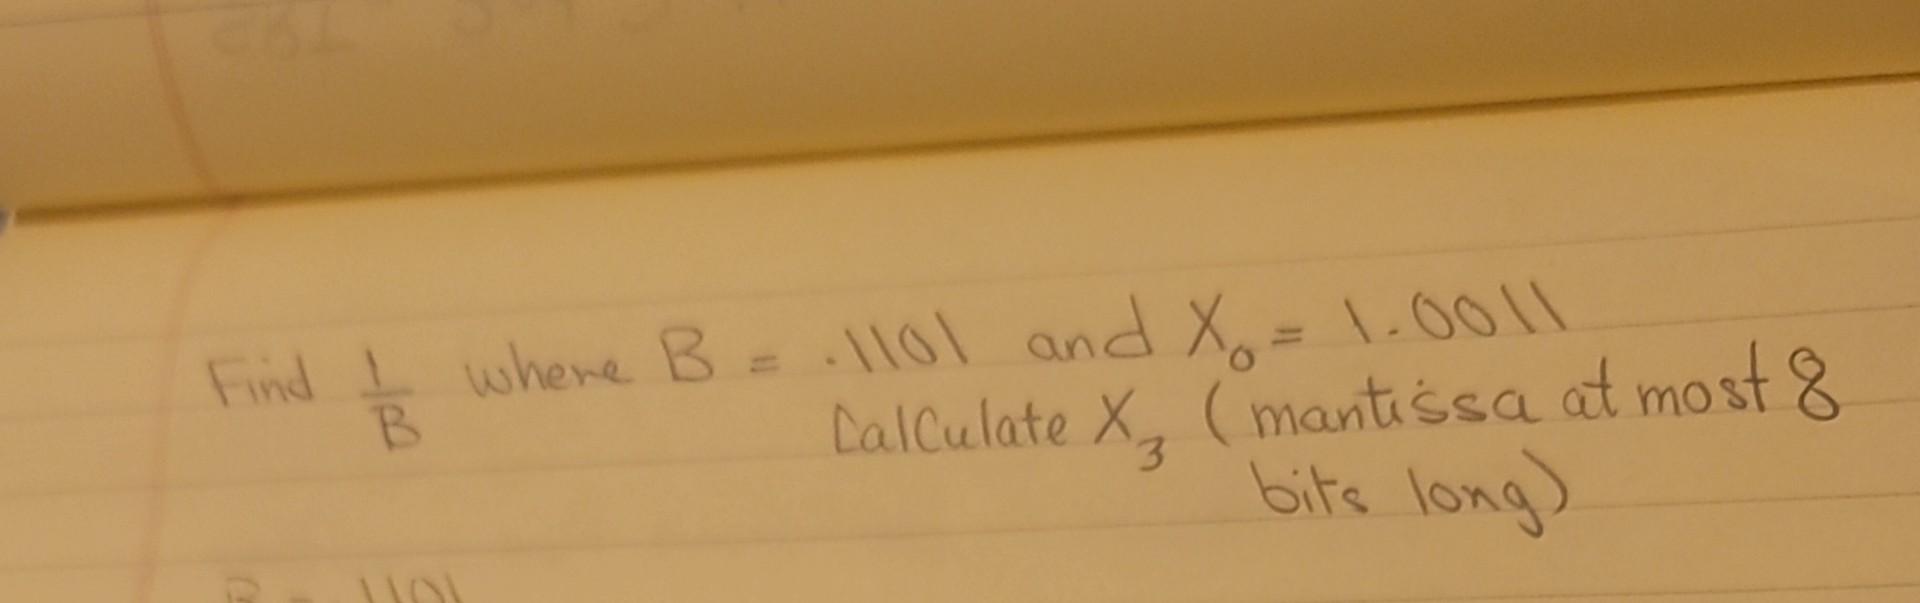 Find 1/B where B = .1101 and X₀ = 1.0011
Calculate X₃ (mantissa at most 8
bits long)
B = .1101